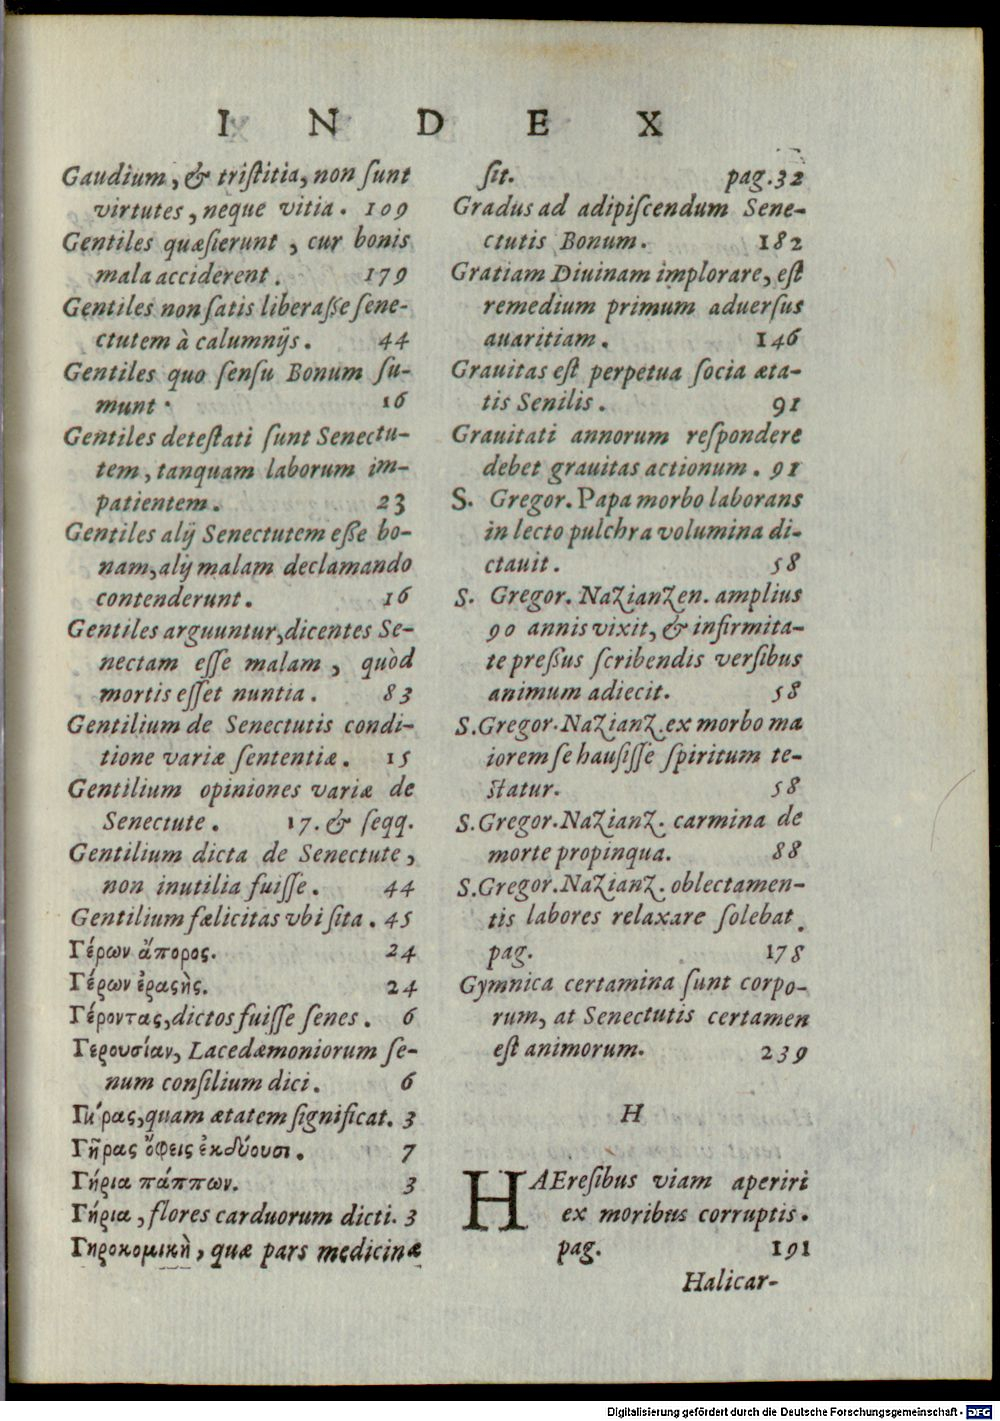 I N D E X
Gaudium, & triſtitia, non ſunt
virtutes, neque vitia. 109
Gentiles quæſierunt, cur bonis
mala acciderent. 179
Gentiles non ſatis liberaſſe ſene-
ctutem à calumnijs. 44
Gentiles quo ſenſu Bonum ſu-
munt. 16
Gentiles deteſtati ſunt Senectu-
tem, tanquam laborum im-
patientem. 23
Gentiles alij Senectutem eſſe bo-
nam, alij malam declamando
contenderunt. 16
Gentiles arguuntur, dicentes Se-
nectam eſſe malam, quòd
mortis eſſet nuntia. 83
Gentilium de Senectutis condi-
tione variæ ſententiæ. 15
Gentilium opiniones variæ de
Senectute. 17. & ſeqq.
Gentilium dicta de Senectute,
non inutilia fuiſſe. 44
Gentilium fælicitas vbi ſita. 45
Γέρων ἄπορος. 24
Γέρων ἐραςὴς. 24
Γέροντας, dictos fuiſſe ſenes. 6
Γερουσίαν, Lacedæmoniorum ſe-
num conſilium dici. 6
Γῆρας, quam ætatem ſignificat. 3
Γῆρας ὄφεις ἐκδύουσι. 7
Γήρια πάππων. 3
Γήρια, flores carduorum dicti. 3
Γηροκομικὴ, quæ pars medicinæ
ſit. pag. 32
Gradus ad adipiſcendum Sene-
ctutis Bonum. 182
Gratiam Diuinam implorare, eſt
remedium primum aduerſus
auaritiam. 146
Grauitas eſt perpetua ſocia æta-
tis Senilis. 91
Grauitati annorum reſpondere
debet grauitas actionum. 91
S. Gregor. Papa morbo laborans
in lecto pulchra volumina di-
ctauit. 58
S. Gregor. Nazianzen. amplius
90 annis vixit, & infirmita-
te preſſus ſcribendis verſibus
animum adiecit. 58
S. Gregor. Nazianz. ex morbo ma
iorem ſe hauſiſſe ſpiritum te-
ſtatur. 58
S. Gregor. Nazianz. carmina de
morte propinqua. 88
S. Gregor. Nazianz. oblectamen-
tis labores relaxare ſolebat.
pag. 178
Gymnica certamina ſunt corpo-
rum, at Senectutis certamen
eſt animorum. 239
H
HAEreſibus viam aperiri
ex moribus corruptis.
pag. 191
Halicar-
Digitalisierung gefördert durch die Deutsche Forschungsgemeinschaft - DFG